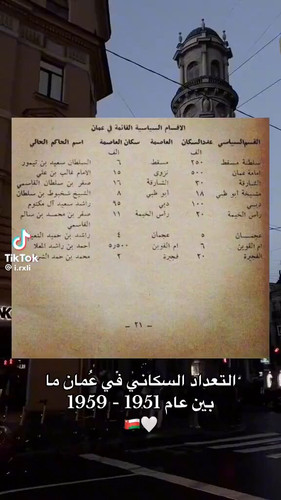 الاقسام السياسية القائمة في عمان
القسم السياسي عدد السكان العاصمة سكان العاصمة اسم الحاكم الحالي
الف الف
سلطنة مسقط ٢٥٠ مسقط ٦ السلطان سعيد بن تيمور
امامة عمان ٥٠٠ نزوى ١٥ الامام غالب بن علي
الشارقة ٣٠ الشارقة ١٦ صقر بن سلطان القاسمي
مشيخة ابو ظبي ١٨ ابو ظبي ٨ الشيخ شخبوط بن سلطان
دبي ١٠٠ دبي ٩٥ راشد سعيد آل مكتوم
رأس الخيمة ٣٠ رأس الخيمة ١١ صقر بن محمد بن سالم
القاسمي
عجمان ٥ عجمان ٤ راشد بن حميد
ام القوين ٦ ام القوين ٥٠٠ر٥ احمد بن راشد المعلا
الفجيرة ٢٠ فجيرة ٢ محمد بن حمد
— ٢١ —
TikTok
@i.rxli
التعداد السكاني في عُمان ما
بين عام 1951 - 1959
🇴🇲🤍